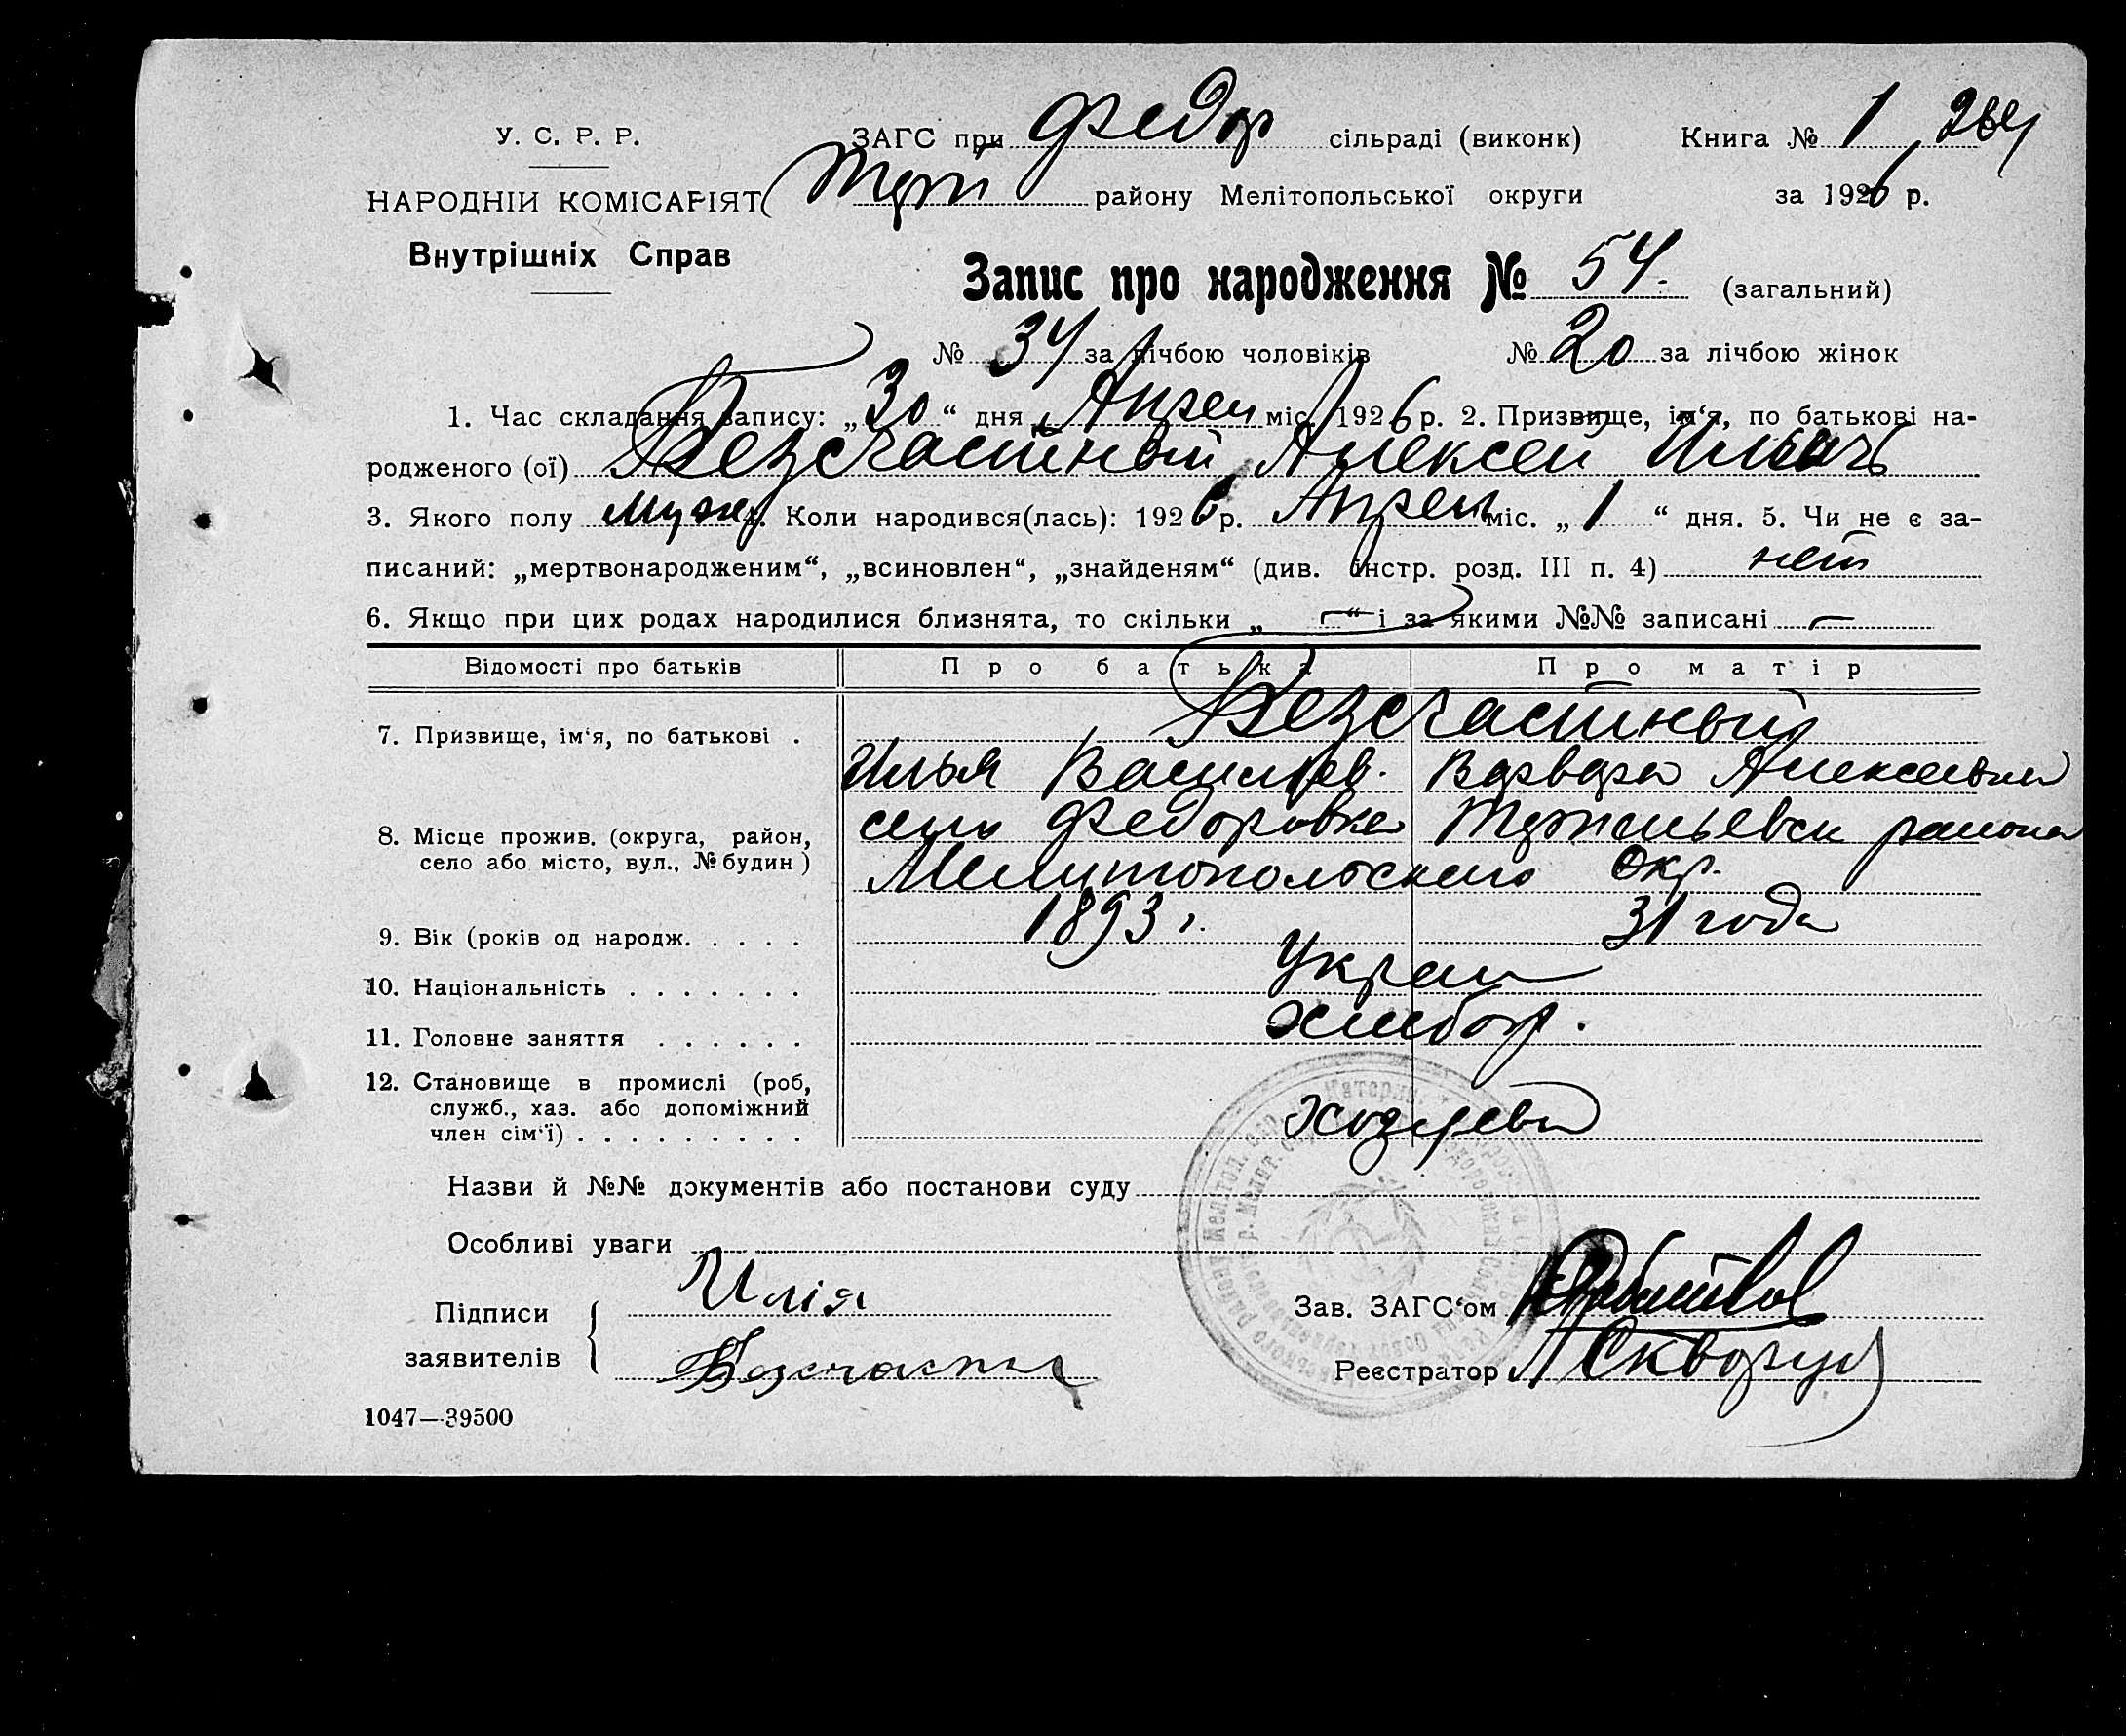 У. С. Р. Р.
ЗАГС при Федор сільраді (виконк) Книга № 1 264
НАРОДНІЙ КОМІСАРІЯТ Терп району Мелітопольської округи за 1926 р.
Внутрішніх Справ
Запис про народження № 54. (загальний)
№ 34 за лічбою чоловіків № 20 за лічбою жінок
1. Час складання запису: „30“ дня Апрел міс. 1926 р. 2. Призвище, ім‘я, по батькові на-
родженого (ої) Безсчастный Алексей Ильичъ
3. Якого полу муж 4. Коли народився(лась): 1926 р. Апрел міс. „1“ дня. 5. Чи не є за-
писаний: „мертвонародженим“, „всиновлен“, „знайденям“ (див. інстр. розд. III п. 4) нет
6. Якщо при цих родах народилися близнята, то скільки „—“ і за якими №№ записані —
Відомості про батьків Про батька Про матір
7. Призвище, ім‘я, по батькові . Безсчастный
Илья Василіев. Варвара Алексеевна
8. Місце прожив. (округа, район, село Федоровка Терпеньевск района
село або місто, вул., № будин) Мелитопольского Окр.
9. Вік (років од народж. . . . . 1893 г. 31 года
10. Національність . . . . . . . Украи
11. Головне заняття . . . . . . хлебор.
12. Становище в промислі (роб,
служб., хаз. або допоміжний
член сім‘ї) . . . . . . . . . хозяева
Назви й №№ документів або постанови суду
Особливі уваги
Підписи Илія Зав. ЗАГС‘ом
заявителів Безсчастны Реєстратор А Скворцов
1047—39500